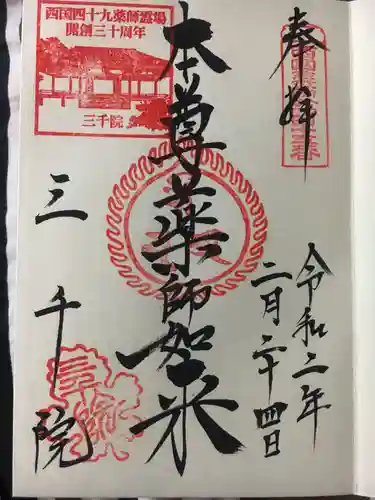 奉拝
令和二年
二月二十四日
本尊薬師如来
三千院
西国四十九薬師霊場
開創三十周年
三千院